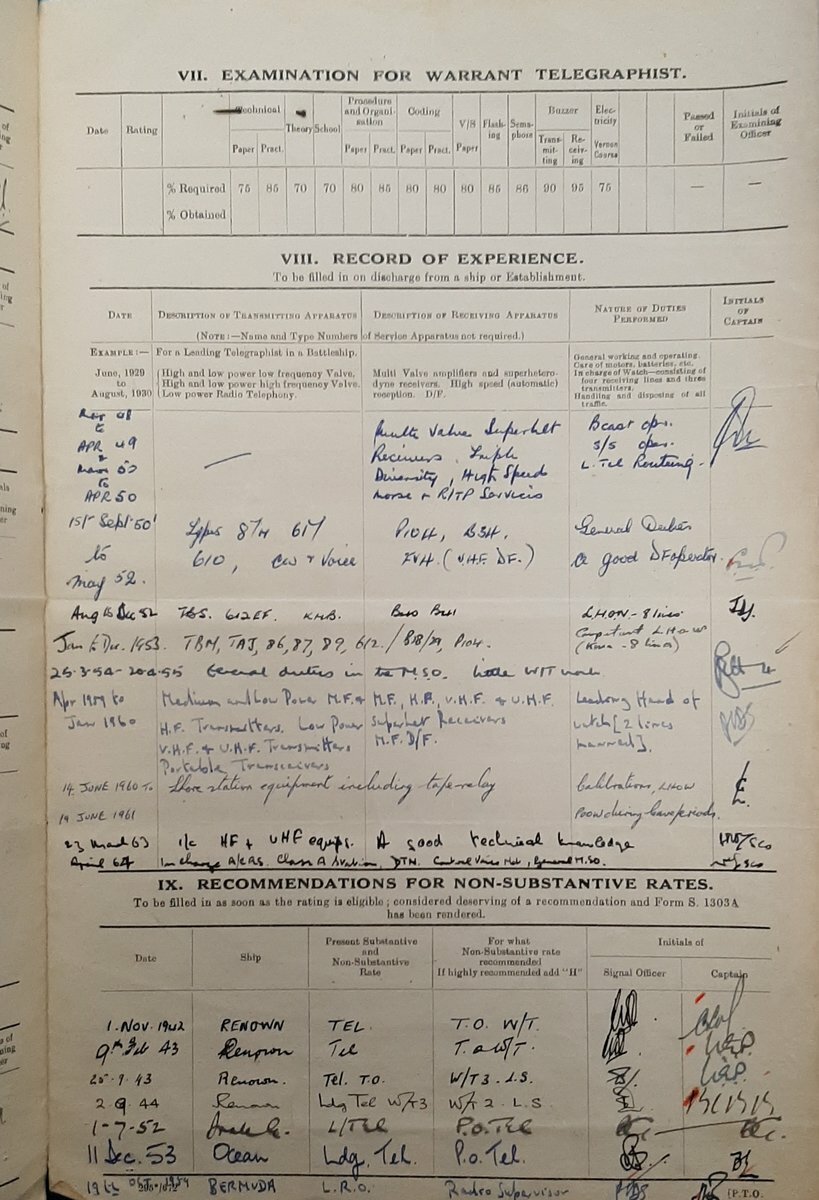 VII. EXAMINATION FOR WARRANT TELEGRAPHIST.
Date Rating Technical Theory School Procedure and Organisation Coding V/S Flashing Semaphore Buzzer Electricity Passed or Failed Initials of Examining Officer
Paper Pract. Paper Pract. Paper Pract. Paper Transmitting Receiving Vernon Course
% Required 75 85 70 70 80 85 80 80 80 85 86 90 95 75 — —
% Obtained
VIII. RECORD OF EXPERIENCE.
To be filled in on discharge from a ship or Establishment.
DATE DESCRIPTION OF TRANSMITTING APPARATUS DESCRIPTION OF RECEIVING APPARATUS NATURE OF DUTIES PERFORMED INITIALS OF CAPTAIN
(NOTE:—Name and Type Numbers of Service Apparatus not required.)
EXAMPLE:— For a Leading Telegraphist in a Battleship. General working and operating.
Care of motors, batteries, etc.
June, 1929 High and low power low frequency Valve. Multi Valve amplifiers and superhetero- In charge of Watch—consisting of
to High and low power high frequency Valve. dyne receivers. High speed (automatic) four receiving lines and three transmitters.
August, 1930 Low power Radio Telephony. reception. D/F. Handling and disposing of all traffic.
48
to Multi Valve Superhet Bcast ops.
APR 49 Receivers, Triple S/S oper.
to Diversity, High Speed L. Tel Routeing.
APR 50 morse & R/TP Services
1st Sept 50' Types 87M 617 P104, B34, General Duties
to 610, CW & Voice FVH. (VHF DF.) a good DF operator.
May 52.
Aug to Dec 52 TBS. 612EF. LHOW - 8 lines
Jan to Dec. 1953. TBM, TAJ, 86, 87, 89, 612. / B18/29, P104. Competent LHOW
25-3-54 - 20-4-55 General duties in the M.S.O. Little W/T work.
Apr 1959 to Medium and Low Power M.F. & M.F., H.F., V.H.F. & U.H.F. Leading Hand of
Jan 1960 H.F. Transmitters. Low Power Superhet Receivers watch [2 lines
V.H.F. & U.H.F. Transmitters M.F. D/F. manned].
Portable Transceivers
14 JUNE 1960 TO Shore station equipment including tape-relay Calibrations, LHOW
19 JUNE 1961 POOW during leave periods.
23 March 63 i/c HF & UHF equips. A good technical knowledge
April 64 In charge Class A Station, DTN. Control Voice Net, General M.SO.
IX. RECOMMENDATIONS FOR NON-SUBSTANTIVE RATES.
To be filled in as soon as the rating is eligible; considered deserving of a recommendation and Form S. 1303A
has been rendered.
Date Ship Present Substantive and Non-Substantive Rate For what Non-Substantive rate recommended If highly recommended add "H" Initials of
Signal Officer Captain
1. NOV. 1942 RENOWN TEL. T.O. W/T.
9th Feb 43 Renown Tel T.O W/T.
25.9.43 Renown. Tel. T.O. W/T3. L.S.
2.9.44 Renown Ldg Tel W/T3 W/T 2. L.S
1-7-52 L/Tel P.O. Tel
11 Dec. 53 Ocean Ldg. Tel. P.o. Tel.
19th OCT. 1959 BERMUDA L.R.O. Radio Supervisor
[P.T.O.